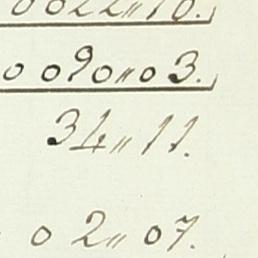 0 022"10.
0 090"03.
34"11.
0 2"07.